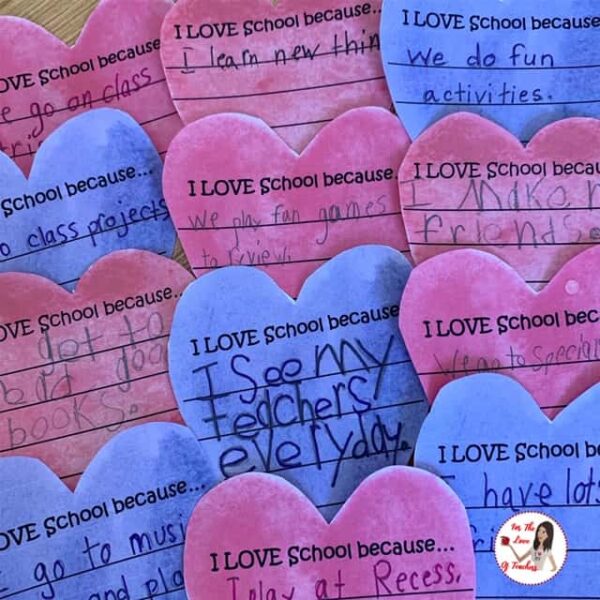 OVE School because...
e go on class
I LOVE School because...
I learn new thin
I LOVE School because
we do fun
activities.
School because...
o class projects
I LOVE School because.
We play fun games
to review.
I LOVE School becau
I make n
friends.
OVE School because..
get to
good
books.
I LOVE School because
I See my
teachers
everyday.
I LOVE School bec
We go to special
OVE School because...
go to musi
and pla
I LOVE School because...
I play at Recess.
I LOVE School be
I have lots
For The
Love
Of Teachers